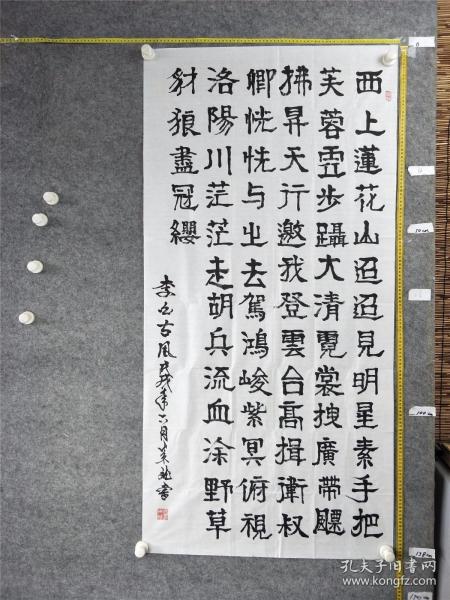 西上蓮花山迢迢見明星素手把
芙蓉虛步躡大清霓裳拽廣帶飄
拂昇天行邀我登雲台高揖衛叔
卿恍恍与之去駕鴻峻紫冥俯視
洛陽川茫茫走胡兵流血涂野草
豺狼盡冠纓
李白古風戊戌年六月書
孔夫子旧书网
www.kongfz.com